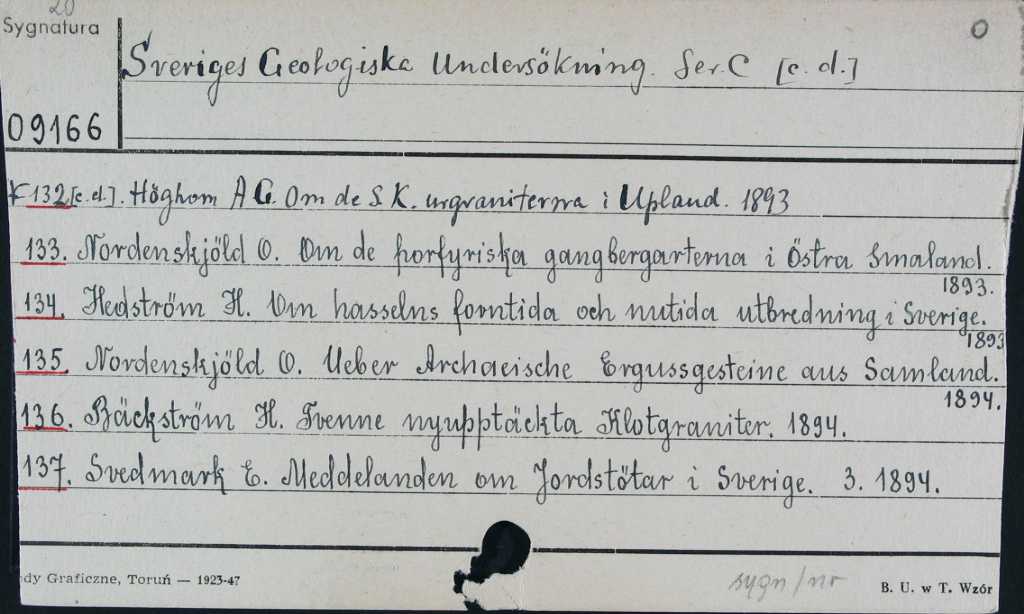 20
Sygnatura
Sveriges Geologiska Undersökning. Ser. C [c. d.]
0
09166
132 [c. d.]. Höghom A G. Om de S. K. urgraniterna i Upland. 1893
133. Nordenskjöld O. Om de porfyriska gangbergarterna i Östra Smaland.
1893.
134. Hedström H. Om hasselns forntida och nutida utbredning i Sverige.
1893
135. Nordenskjöld O. Ueber Archaeische Ergussgesteine aus Samland.
1894.
136. Bäckström H. Tvenne nyupptäckta Klotgraniter. 1894.
137. Svedmark E. Meddelanden om Jordstötar i Sverige. 3. 1894.
dy Graficzne, Toruń — 1923-47
sygn/nr
B. U. w T. Wzór